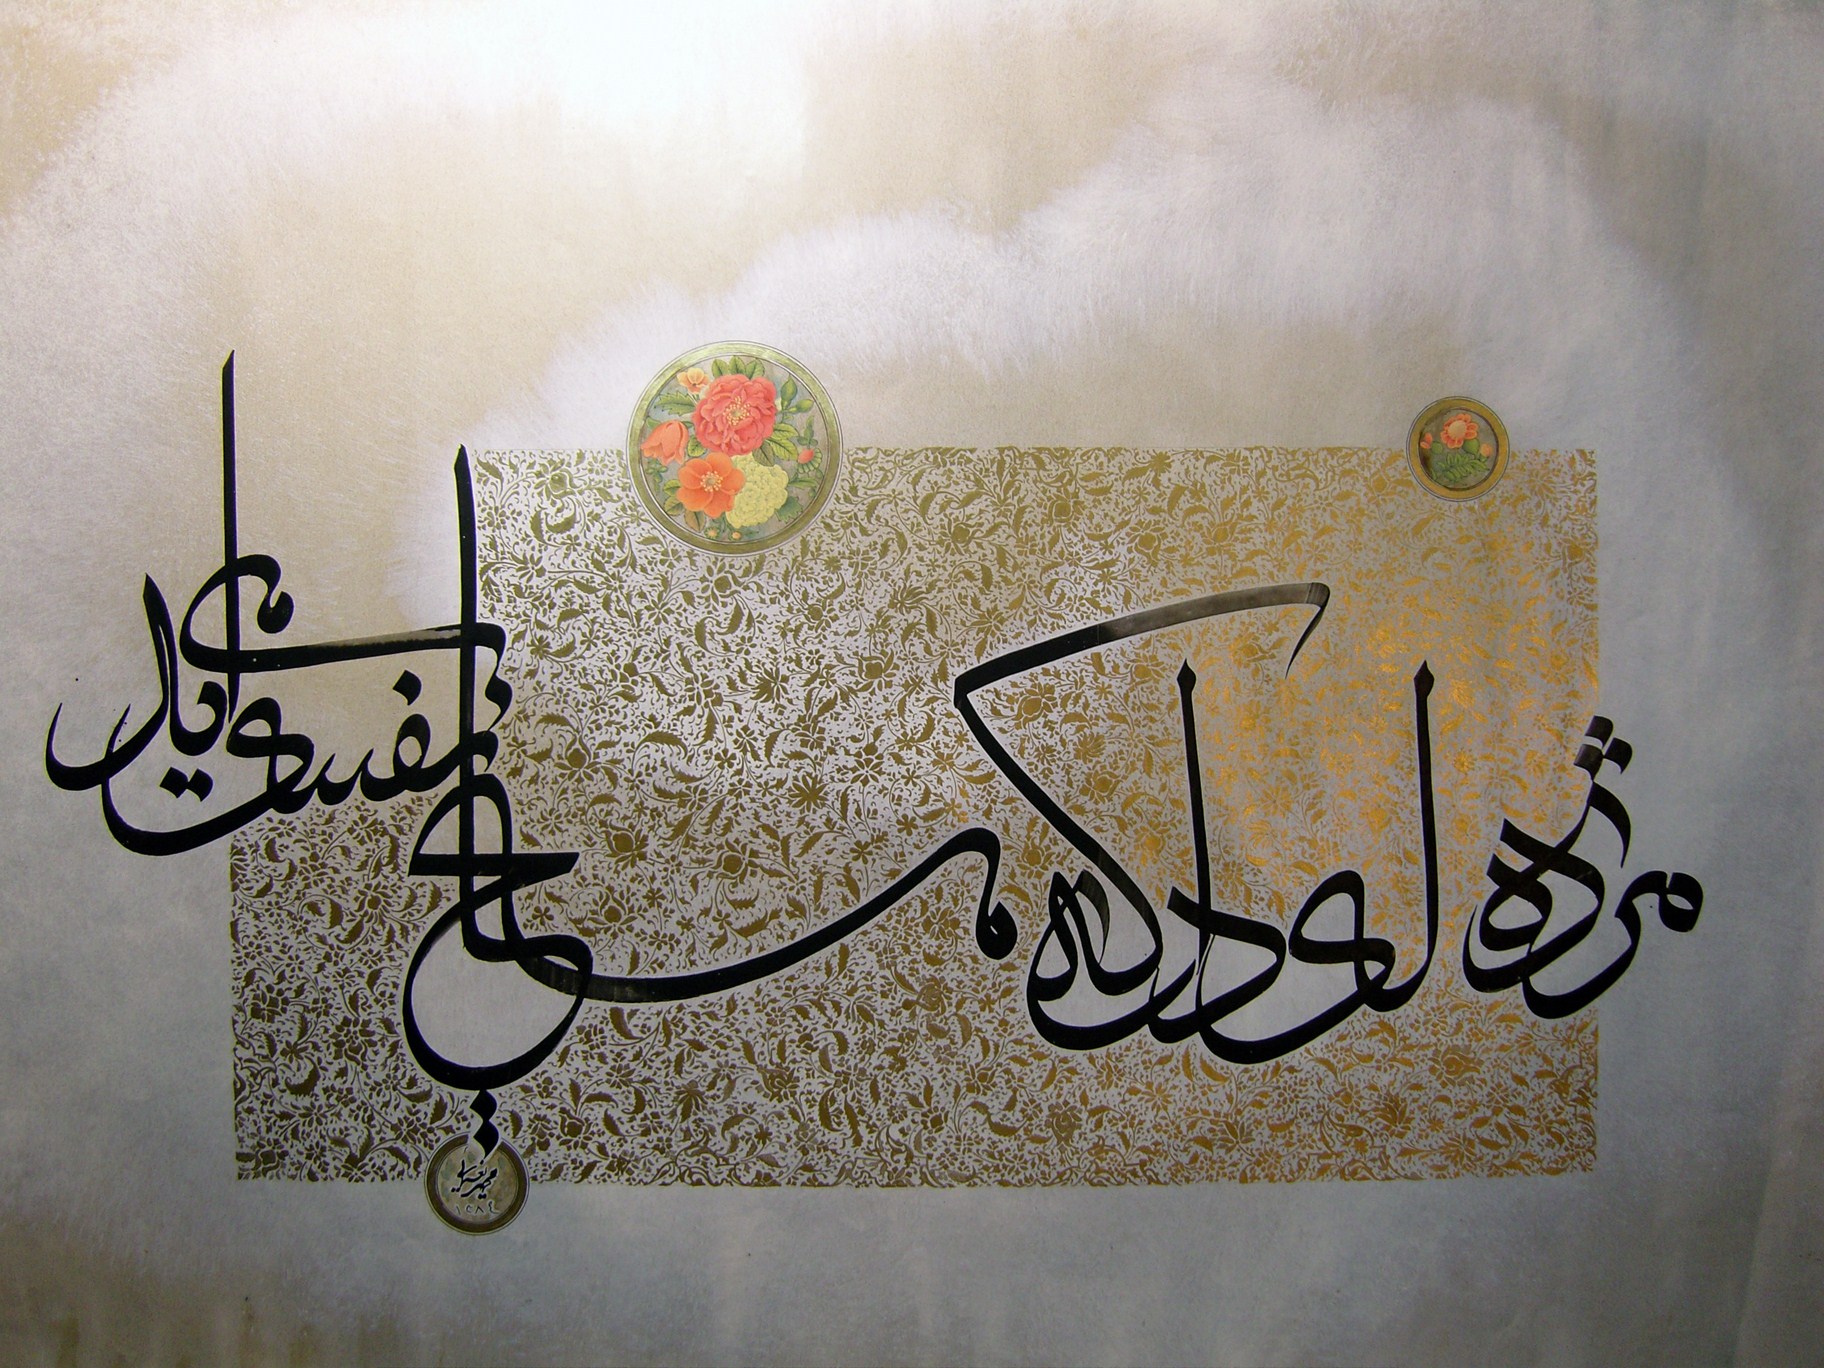 مژده ای دل که مسیحا نفسی می آید
۱۳۸۴